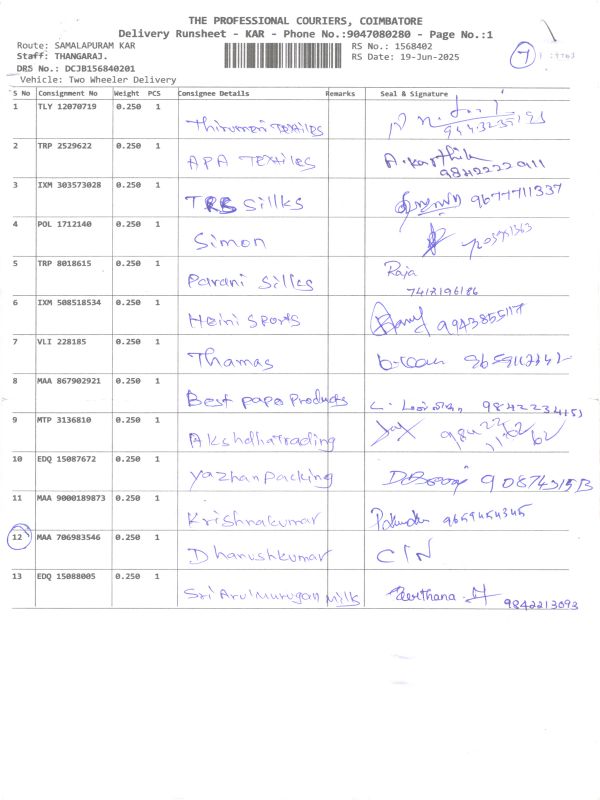 THE PROFESSIONAL COURIERS, COIMBATORE
Delivery Runsheet - KAR - Phone No.:9047080280 - Page No.:1
Route: SAMALAPURAM KAR RS No.: 1568402 7
Staff: THANGARAJ. RS Date: 19-Jun-2025
DRS No.: DCJB156840201
Vehicle: Two Wheeler Delivery
S No Consignment No Weight PCS Consignee Details Remarks Seal & Signature
1 TLY 12070719 0.250 1 Thirumeni Textiles
2 TRP 2529622 0.250 1 APA Textiles A.Karthik
9842222911
3 IXM 303573028 0.250 1 TRS Sillks 9677711337
4 POL 1712140 0.250 1 Simon
5 TRP 8018615 0.250 1 Parani Silks Raja
7418196186
6 IXM 508518534 0.250 1 Heini Sports 9943855117
7 VLI 228185 0.250 1 Thamas
8 MAA 867902921 0.250 1 Best papo Products 9842234153
9 MTP 3136810 0.250 1 Akshdha Trading
10 EDQ 15087672 0.250 1 Yazhan packing
11 MAA 9000189873 0.250 1 Krishnakumar 9659454345
12 MAA 706983546 0.250 1 Dhanushkumar C/N
13 EDQ 15088005 0.250 1 Sri Arulmurugan Milk Keerthana
9842213093